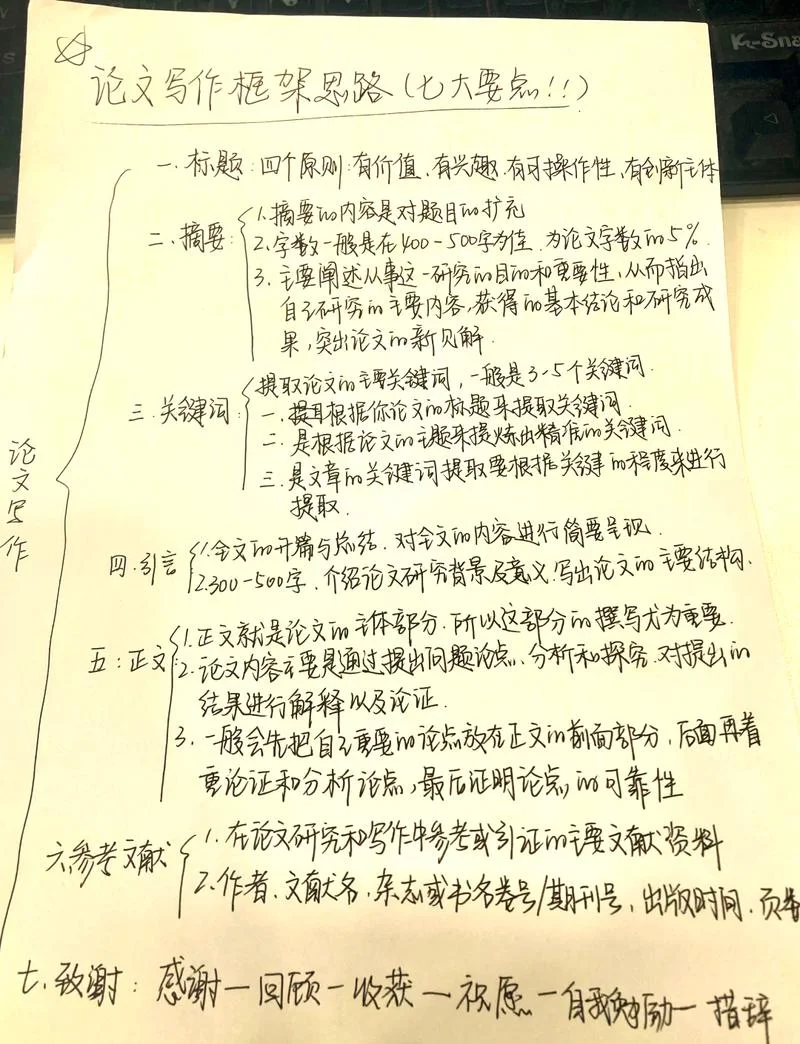 K-Sna
论文写作框架思路(七大要点!!)
一.标题:四个原则:有价值、有兴趣、有可操作性、有创新主体
二.摘要:
1.摘要的内容是对题目的扩充
2.字数一般是在400-500字为佳,为论文字数的5%.
3.主要阐述从事这一研究的目的和重要性,从而指出
自己研究的主要内容,获得的基本结论和研究成
果,突出论文的新见解.
三.关键词:
提取论文的主要关键词,一般是3-5个关键词.
一.提取根据你论文的标题来提取关键词.
二.是根据论文的主题来提炼出精准的关键词.
三.是文章的关键词提取要根据关键的程度来进行
提取.
论文写作
四.引言
1.全文的开篇与总结.对全文的内容进行简要呈现.
2.300-500字.介绍论文研究背景及意义.写出论文的主要结构.
五:正文
1.正文就是论文的主体部分.所以这部分的撰写尤为重要.
2.论文内容主要是通过提出问题论点、分析和探究.对提出的
结果进行解释以及论证.
3.一般会先把自己重要的论点放在正文的前面部分,后面再着
重论证和分析论点,最后证明论点的可靠性
六.参考文献
1.在论文研究和写作中参考或引证的主要文献资料
2.作者、文献名、杂志或书名卷号/期刊号、出版时间、页
七.致谢:感谢—回顾—收获—祝愿—自我勉励—措辞